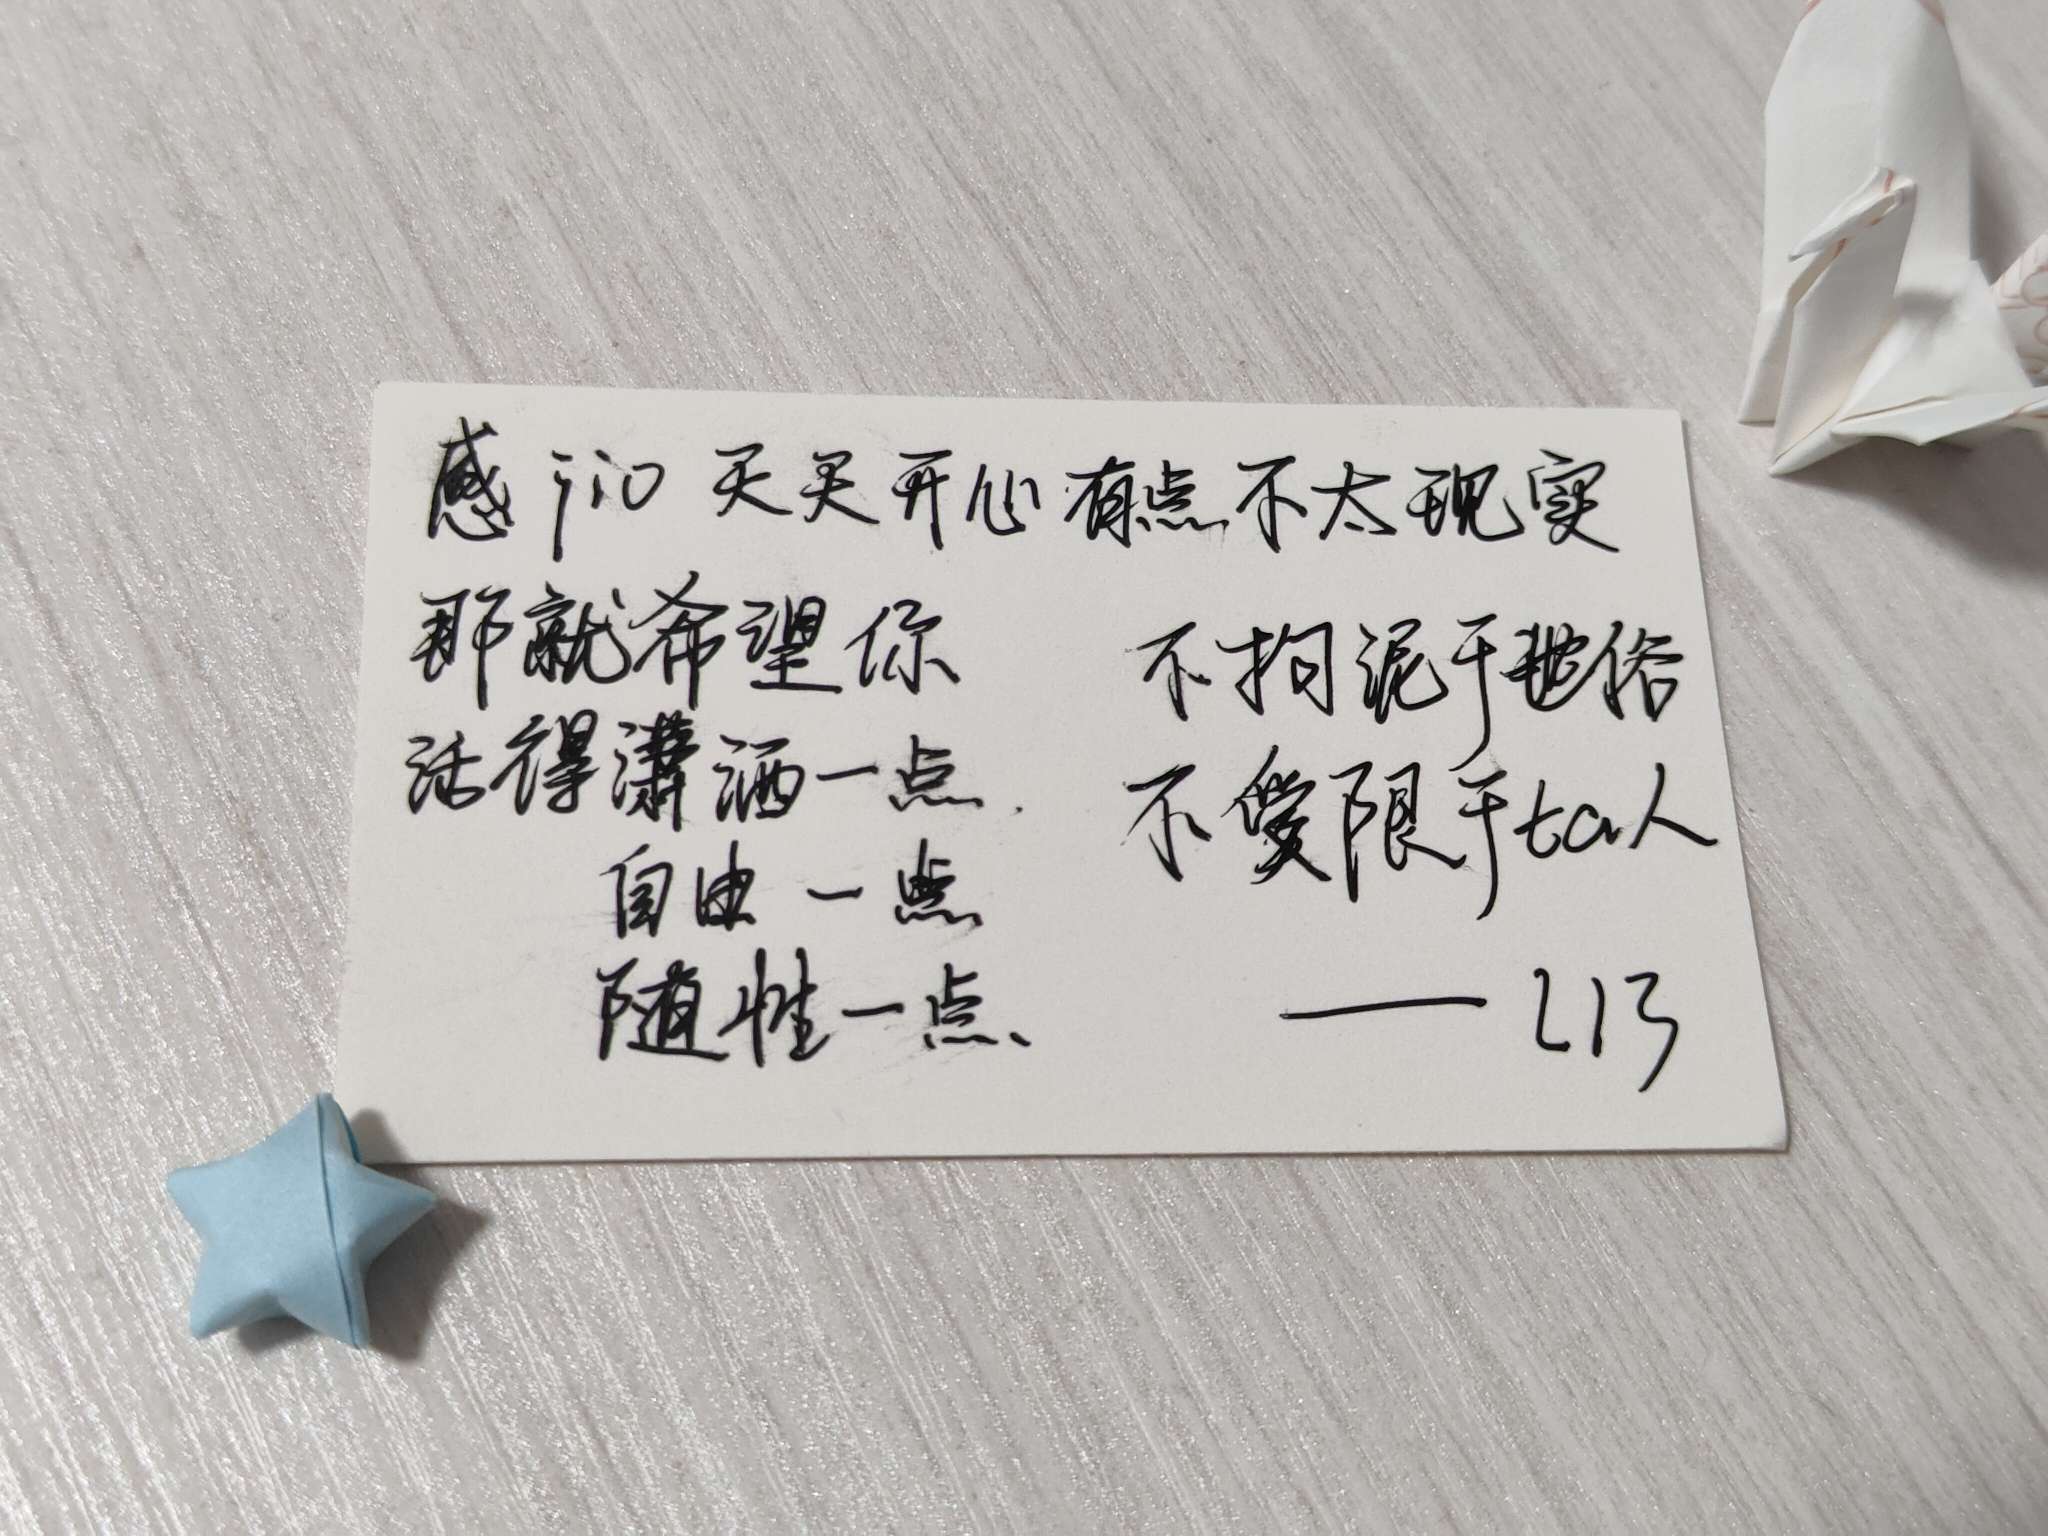 感jio天天开心有点不太现实
那就希望你
活得潇洒一点
自由一点
随性一点、
不拘泥于世俗
不受限于ta人
—— LIB